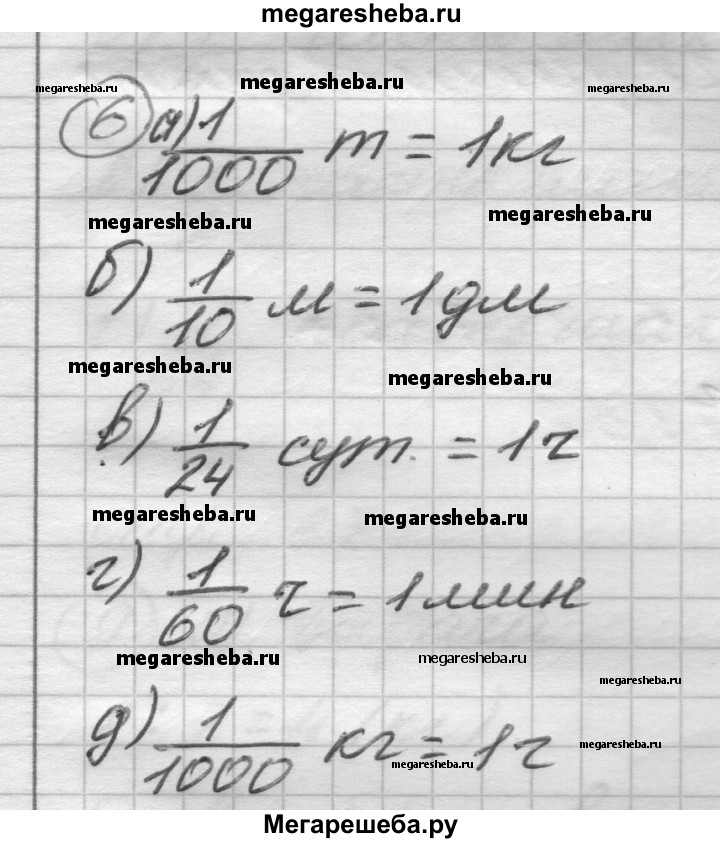 megaresheba.ru
megaresheba.ru megaresheba.ru megaresheba.ru
6 а) 1/1000 т = 1кг
megaresheba.ru megaresheba.ru
б) 1/10 м = 1дм
megaresheba.ru megaresheba.ru
в) 1/24 сут. = 1ч
megaresheba.ru megaresheba.ru
г) 1/60 ч = 1мин
megaresheba.ru megaresheba.ru
megaresheba.ru
д) 1/1000 кг = 1г
megaresheba.ru megaresheba.ru
Мегарешеба.ру